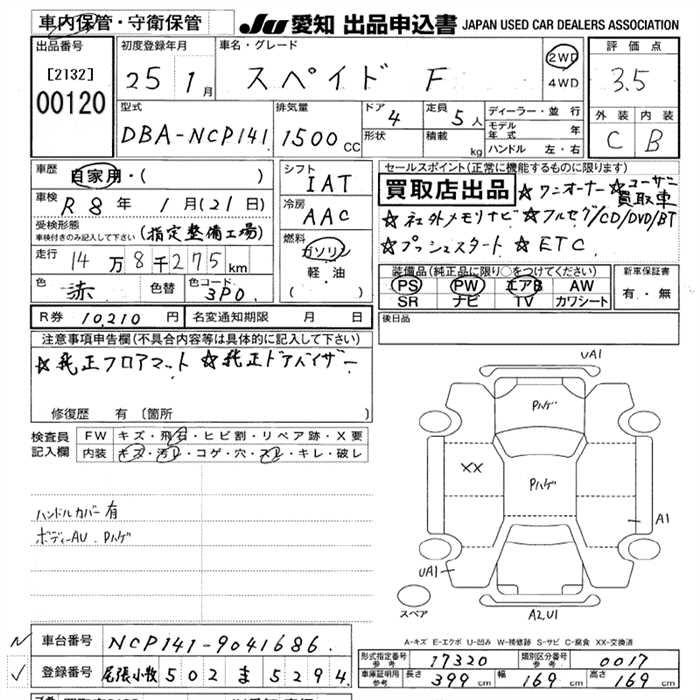 車内保管・守衛保管
JU 愛知 出品申込書 JAPAN USED CAR DEALERS ASSOCIATION
出品番号
[2132]
00120
初度登録年月
25 1月
車名・グレード
スペイド F
2WD
4WD
評価点
3.5
外装 内装
C B
型式
DBA-NCP141
排気量
1500CC
ドア 4
形状
定員 5人
積載 kg
ディーラー・並行
モデル年式 年
ハンドル 左・右
車歴
自家用・( )
車検 R8年 1月(21日)
受検形態
車検付きのみ記入して下さい (指定整備工場)
走行 14万8千275km
色 赤 色替 色コード 3P0
シフト
IAT
冷房
AAC
燃料
ガソリン
軽油
( )
セールスポイント(正常に機能するものに限ります)
買取店出品 ☆ワンオーナー☆ユーザー買取車
☆社外メモリナビ☆フルセグ/CD/DVD/BT
☆プッシュスタート ☆ETC
装備品(純正品に限り○をつけてください)
PS PW エアB AW
SR ナビ TV カワシート
新車保証書
有・無
R券 10,210円 名変通知期限 月 日
後日品
注意事項申告欄(不具合内容等は具体的に記入して下さい)
☆純正フロアマット ☆純正ドアバイザー
修復歴 有 [箇所
検査員記入欄
FW キズ・飛石・ヒビ割・リペア跡・X要
内装 キズ・汚レ・コゲ・穴・スレ・キレ・破レ
ハンドルカバー有
ボディーAU.Pハゲ
UA1
Pハゲ
XX
Pハゲ
A1
UA1
スペア
A2,U1
A-キズ E-エクボ U-凹み W-補修跡 S-サビ C-腐食 XX-交換済
車台番号 NCP141-9041686.
登録番号 尾張小牧 502 ま 5294
形式指定番号 参考 17320 類別区分番号 参考 0017
車庫証明用 参考 長さ 399cm 幅 169cm 高さ 169cm